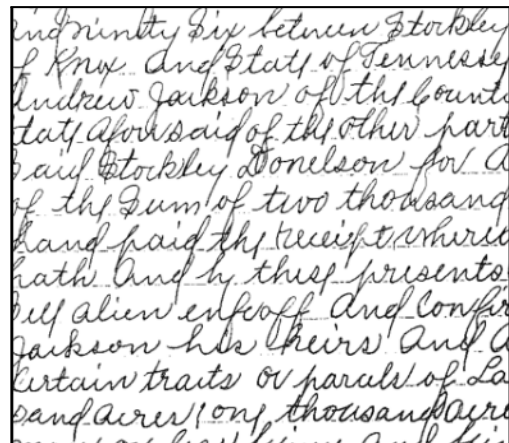 and ninety Six between Stockley
of Knox and State of Tennessee
Andrew Jackson of the County
State aforesaid of the other part
Said Stockley Donelson for a
of the Sum of two thousand
hand paid the receipt where
hath and by these presents
Sell alien enfeoff and confir
Jackson his heirs and a
Certain traits or parcels of La
sand acres; one thousand acre